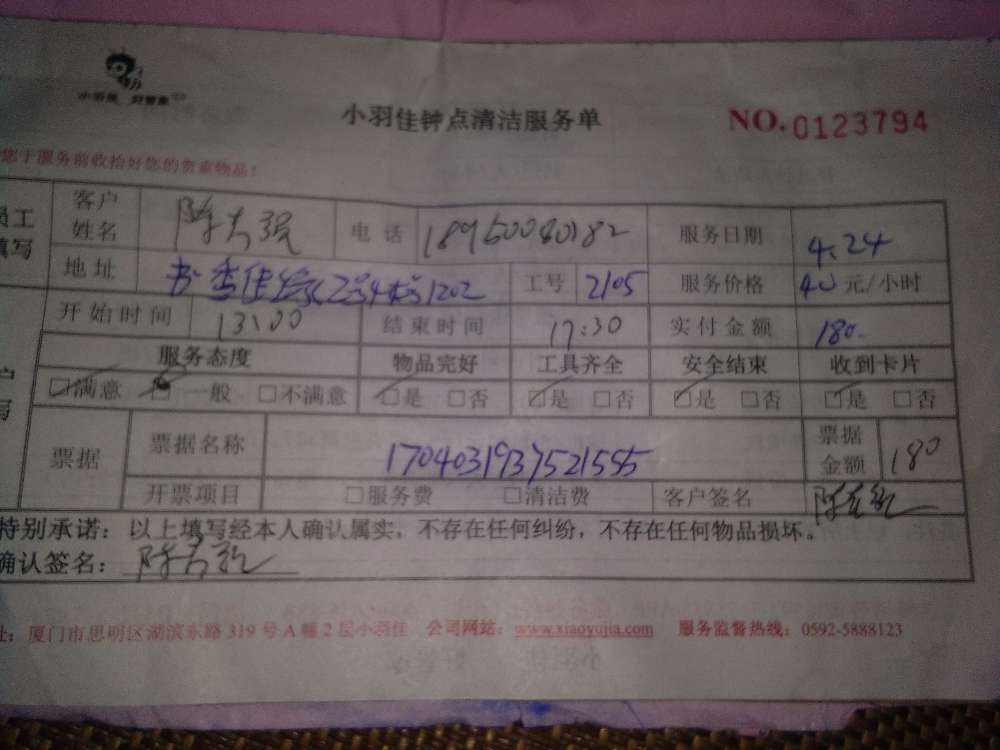 小羽佳 好管家
小羽佳钟点清洁服务单 NO. 0123794
您于服务前收拾好您的贵重物品！
员工填写 客户姓名 电话 18950040182 服务日期 4.24
地址 工号 2105 服务价格 40 元/小时
开始时间 13:00 结束时间 17:30 实付金额 180.
服务态度 物品完好 工具齐全 安全结束 收到卡片
☑满意 □一般 □不满意 ☑是 □否 ☑是 □否 ☑是 □否 ☑是 □否
票据 票据名称 1704031937521555 票据金额 180
开票项目 □服务费 □清洁费 客户签名
特别承诺：以上填写经本人确认属实，不存在任何纠纷，不存在任何物品损坏。
确认签名：
址：厦门市思明区湖滨东路 319 号 A 幢 2 层小羽佳 公司网站：www.xiaoyujia.com 服务监督热线：0592-5888123